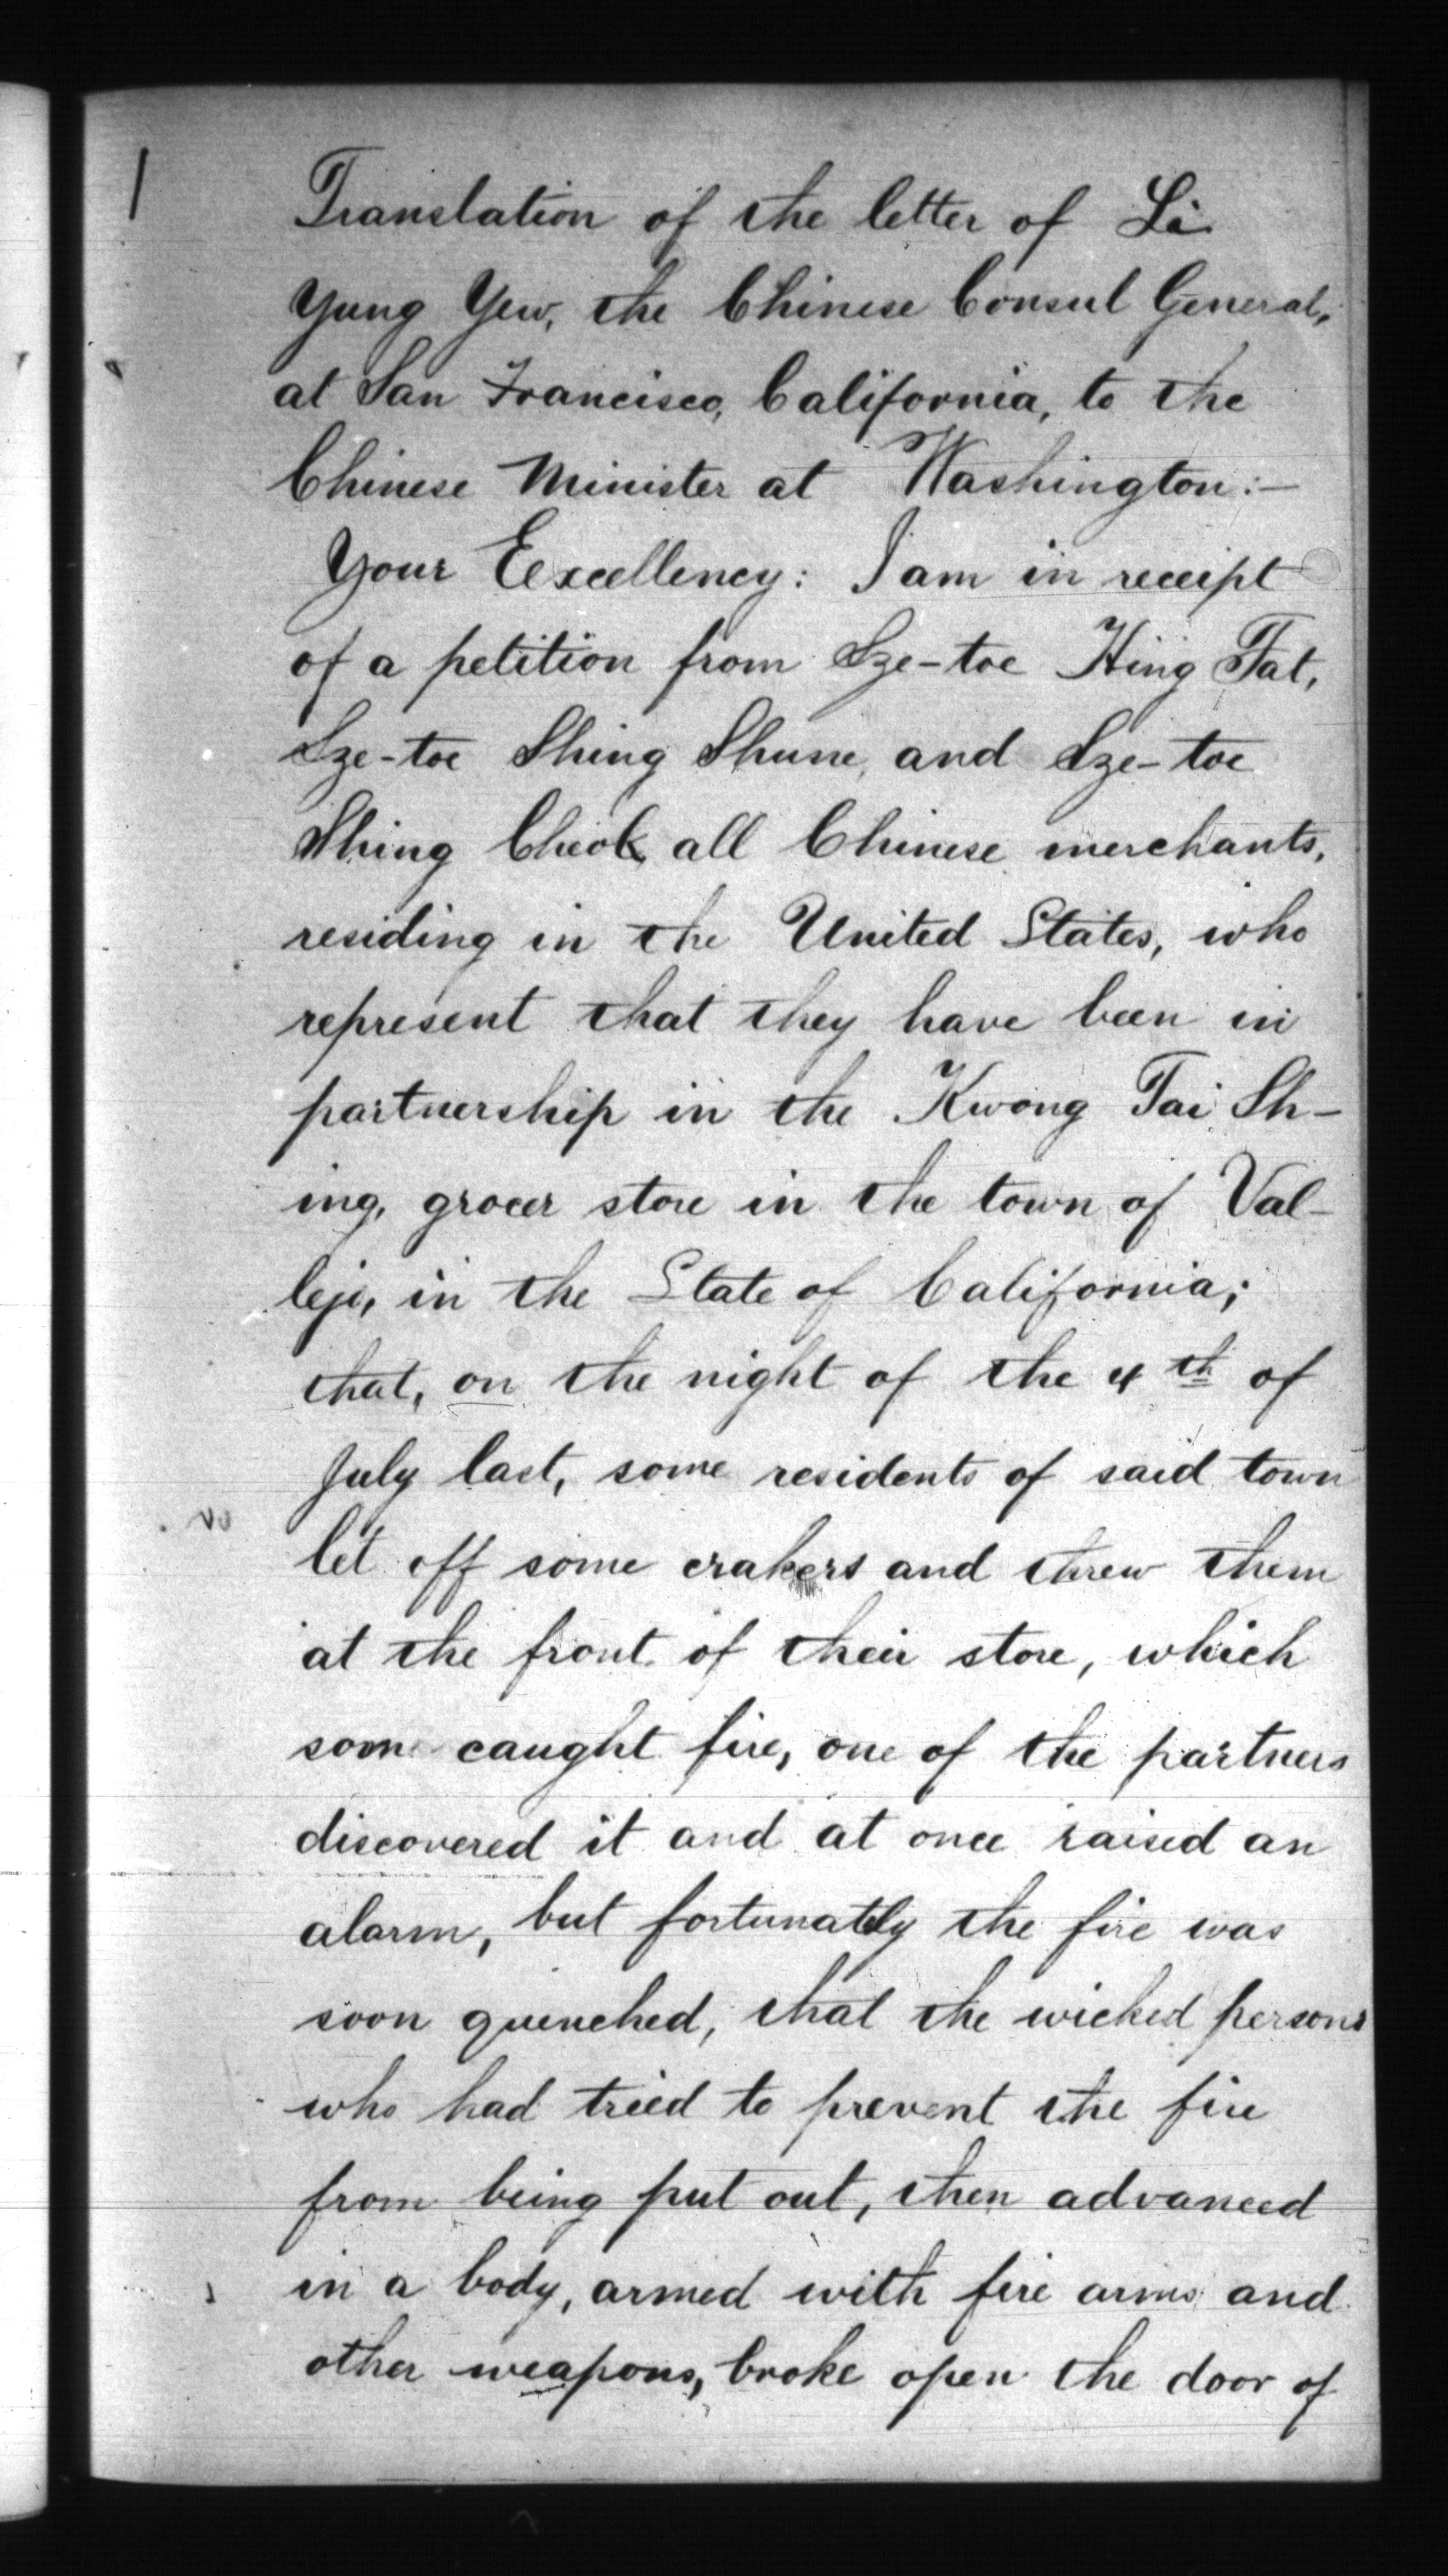 Translation of the letter of Li
Yung Yew, the Chinese Consul General,
at San Francisco, California, to the
Chinese Minister at Washington:—
Your Excellency: I am in receipt
of a petition from Sze-toe Hing Tat,
Sze-toe Shing Shune, and Sze-toe
Shing Cheok, all Chinese merchants,
residing in the United States, who
represent that they have been in
partnership in the Kwong Tai Sh-
ing, grocer store in the town of Val-
lejo, in the State of California;
that, on the night of the 4th of
July last, some residents of said town
let off some crakers and threw them
at the front of their store, which
soon caught fire, one of the partners
discovered it and at once raised an
alarm, but fortunately the fire was
soon quenched, that the wicked persons
who had tried to prevent the fire
from being put out, then advanced
in a body, armed with fire arms and
other weapons, broke open the door of